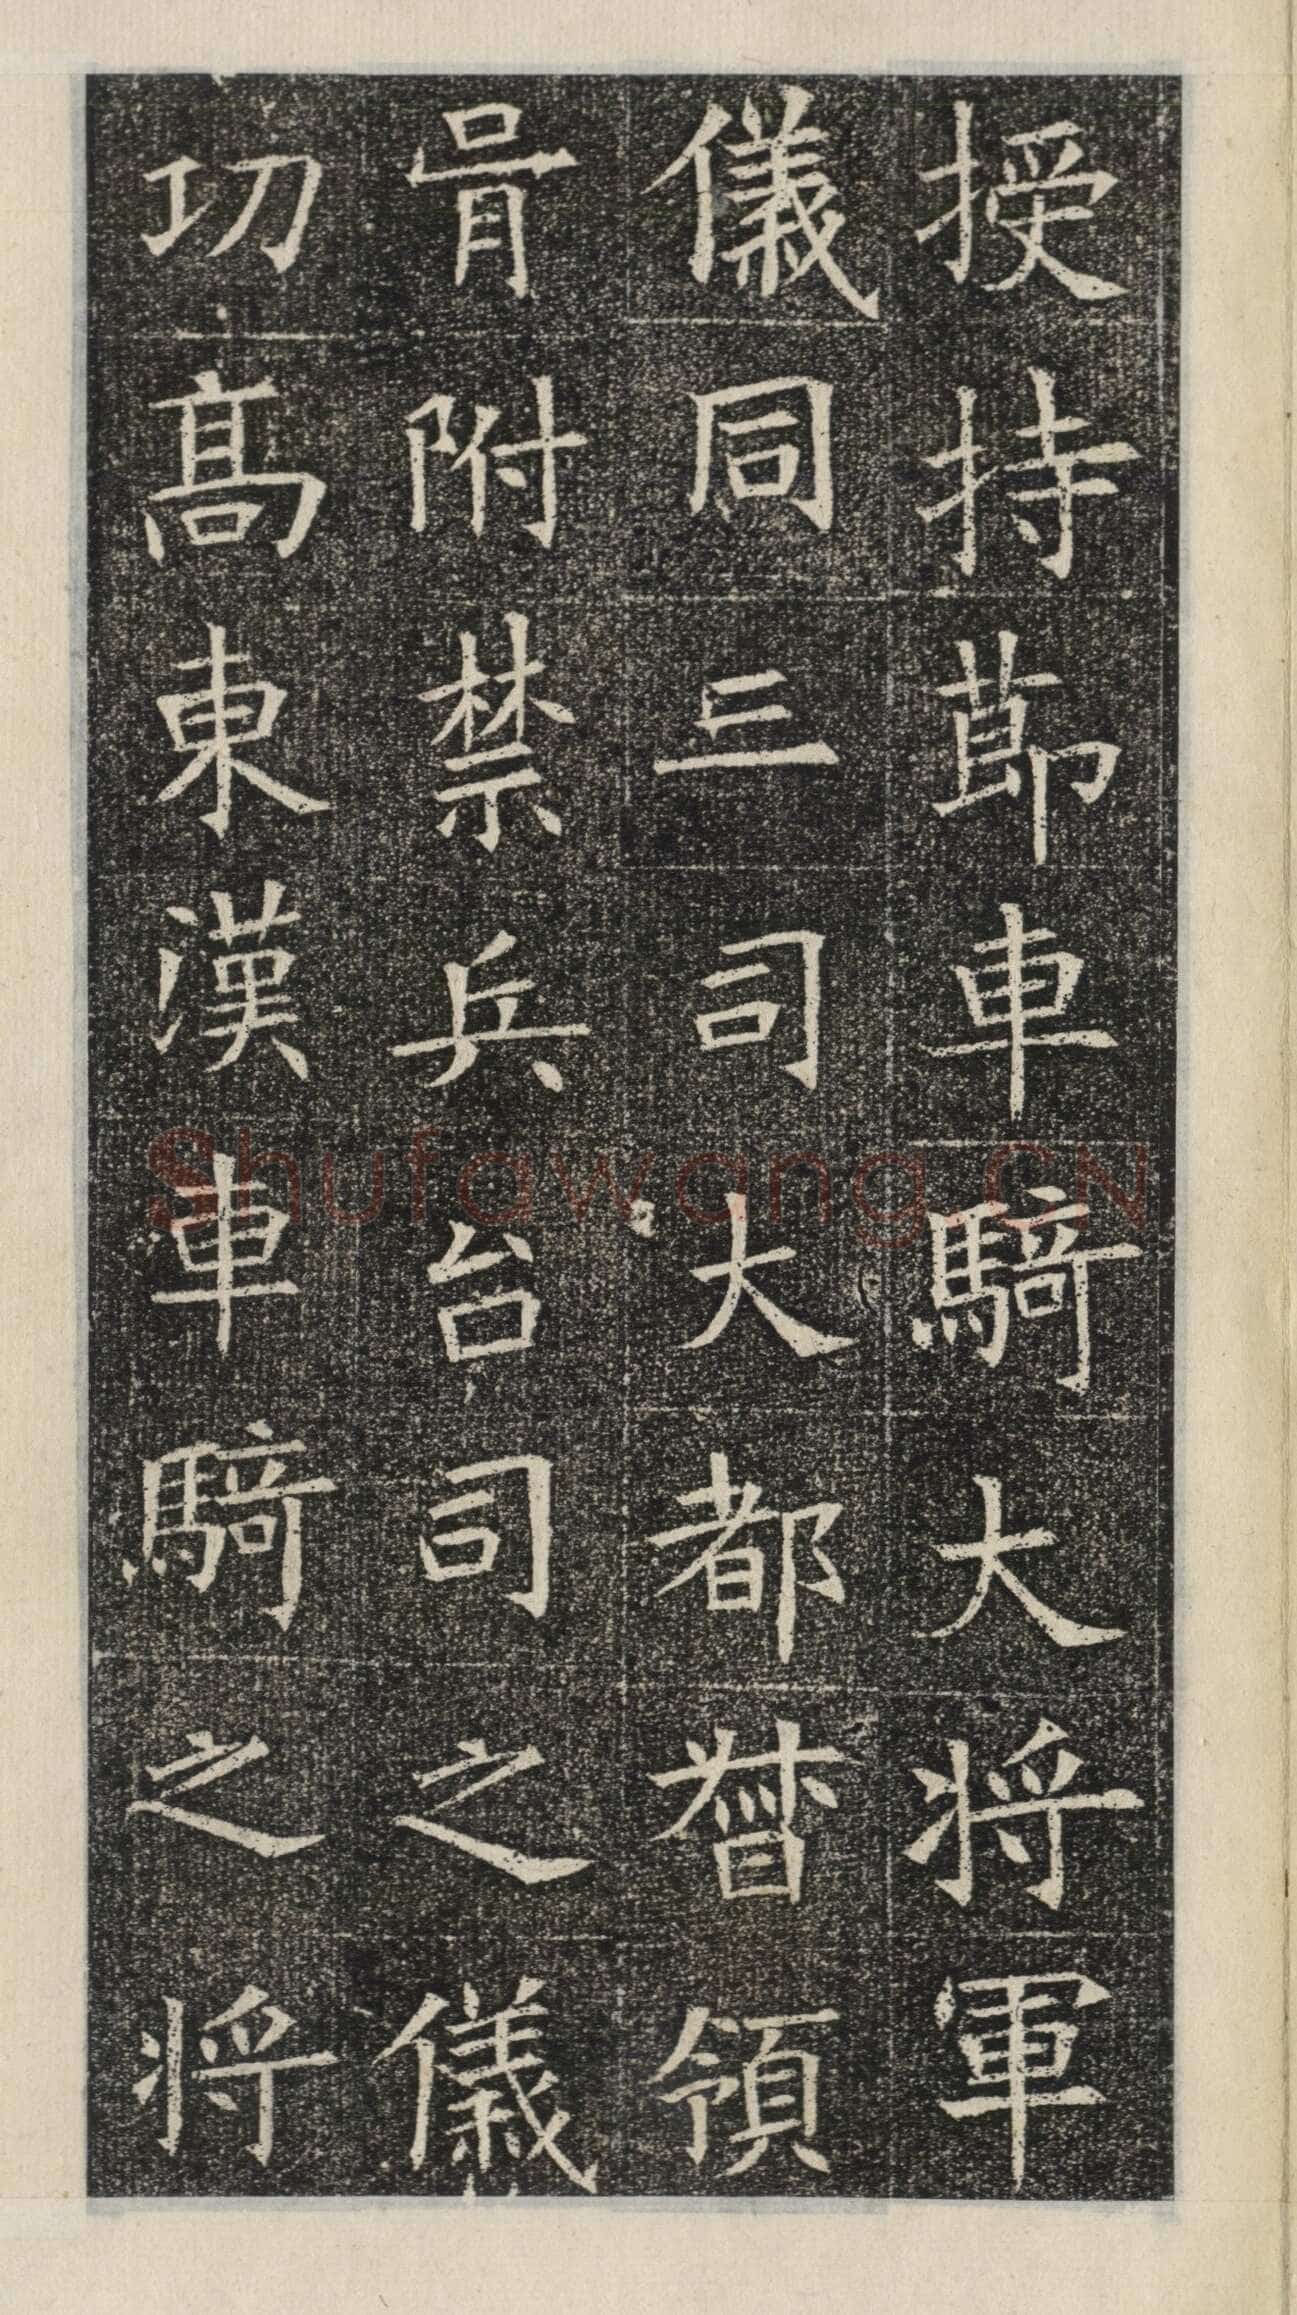 授持莭車騎大将軍
儀同三司大都督領
胥附禁兵台司之儀
功髙東漢車騎之将
Shufawang.CN